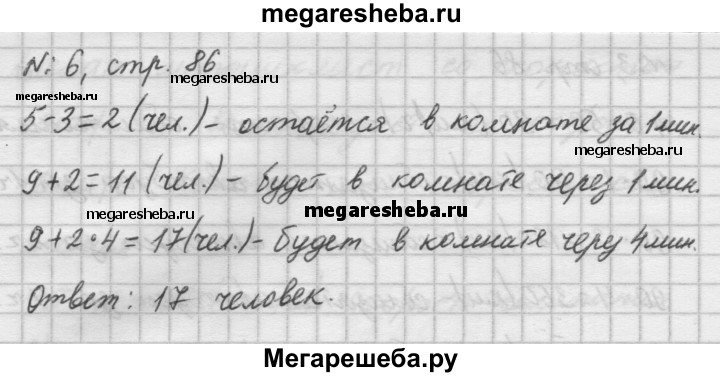 megaresheba.ru
№ 6, стр. 86
megaresheba.ru
megaresheba.ru
5-3=2 (чел.) - остаётся в комнате за 1 мин.
megaresheba.ru
9+2=11 (чел.) - будет в комнате через 1 мин.
megaresheba.ru
megaresheba.ru
9+2·4=17 (чел.) - будет в комнате черу 4 мин.
Ответ: 17 человек.
Мегарешеба.ру